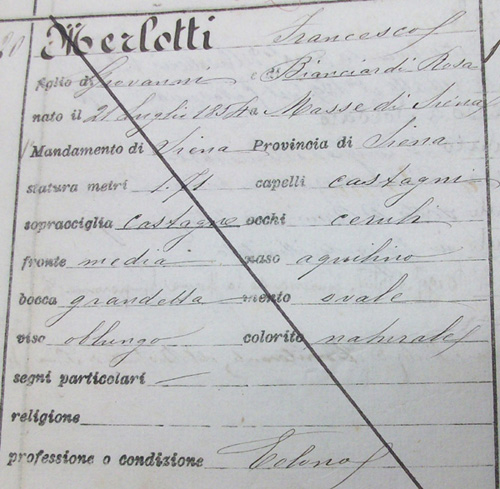 Merlotti Francesco
figlio di Giovanni e di Bianciardi Rosa
nato il 21 Luglio 1854 a Masse di Siena
Mandamento di Siena Provincia di Siena
statura metri 1.71 capelli castagni
sopracciglia castagne occhi ceruli
fronte media naso aquilino
bocca grandetta mento ovale
viso oblungo colorito naturale
segni particolari —
religione
professione o condizione